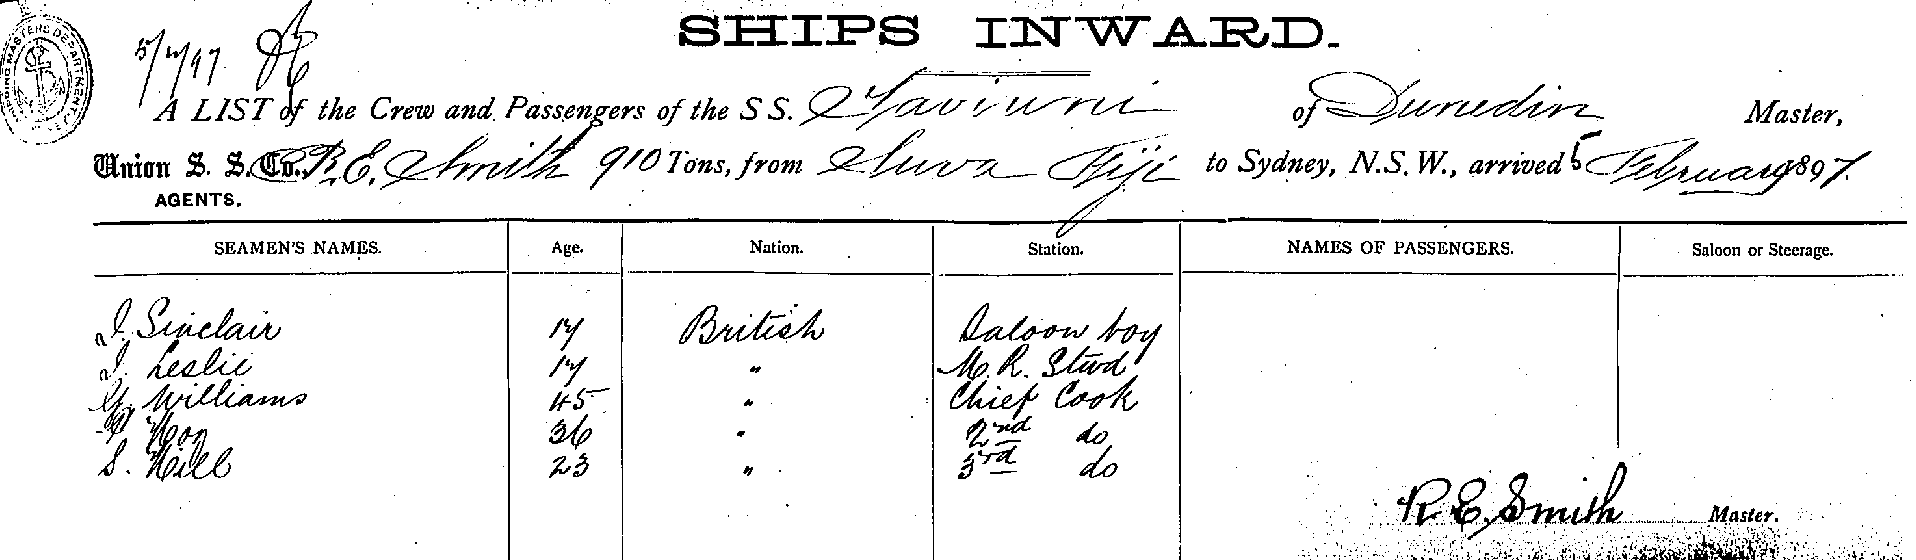 SHIPS INWARD.
5/2/97
A LIST of the Crew and Passengers of the S S. Taviuni of Dunedin Master,
Union S. S. Co., R. E. Smith 910 Tons, from Suva Fiji to Sydney, N.S.W., arrived 5 February 1897.
AGENTS.
SEAMEN'S NAMES. Age. Nation. Station. NAMES OF PASSENGERS. Saloon or Steerage.
Sinclair 17 British Saloon boy
Leslie 17 " M. R. Stwd
Williams 45 " Chief Cook
36 " 2nd do
S. Hill 23 " 3rd do
R E, Smith Master.